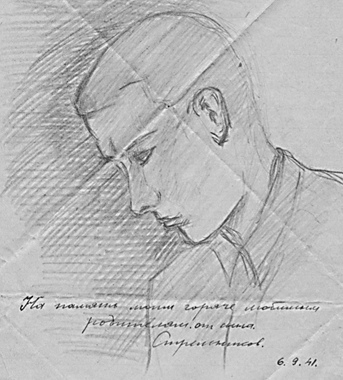 На память моим горяче любимым
родителям от сына.
Стрельников.
6.9.41.